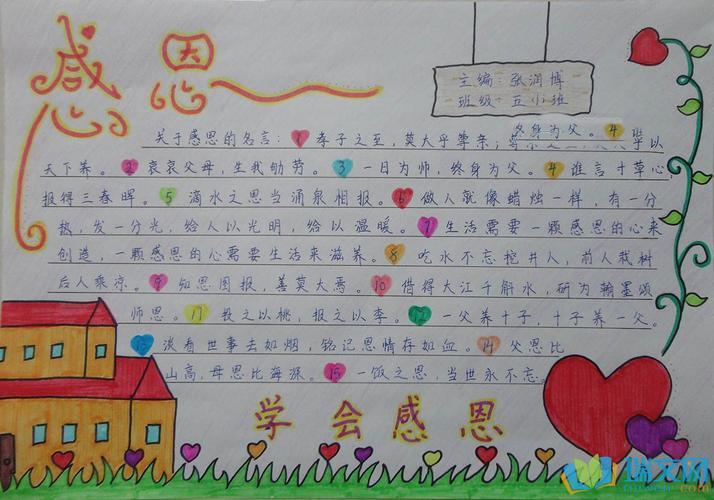 感恩
主编:张润博
班级:五小班
终身为父。4
关于感恩的名言:1 孝子之至,莫大乎尊亲;以
天下养。2 哀哀父母,生我劬劳。3 一日为师,终身为父。4 谁言寸草心,
报得三春晖。5 滴水之恩当涌泉相报。6 做人就像蜡烛一样,有一分
热,发一分光,给人以光明,给以温暖。7 生活需要一颗感恩的心来
创造,一颗感恩的心需要生活来滋养。8 吃水不忘挖井人,前人栽树
后人乘凉。9 知恩图报,善莫大焉。10 借得大江千斛水,研为翰墨颂
师恩。11 投之以桃,报之以李。12 一父养十子,十子养一父。
13 淡看世事去如烟,铭记恩情存如血。14 父恩比
山高,母恩比海深。15 一饭之恩,当世永不忘。
学会感恩
瑞文网